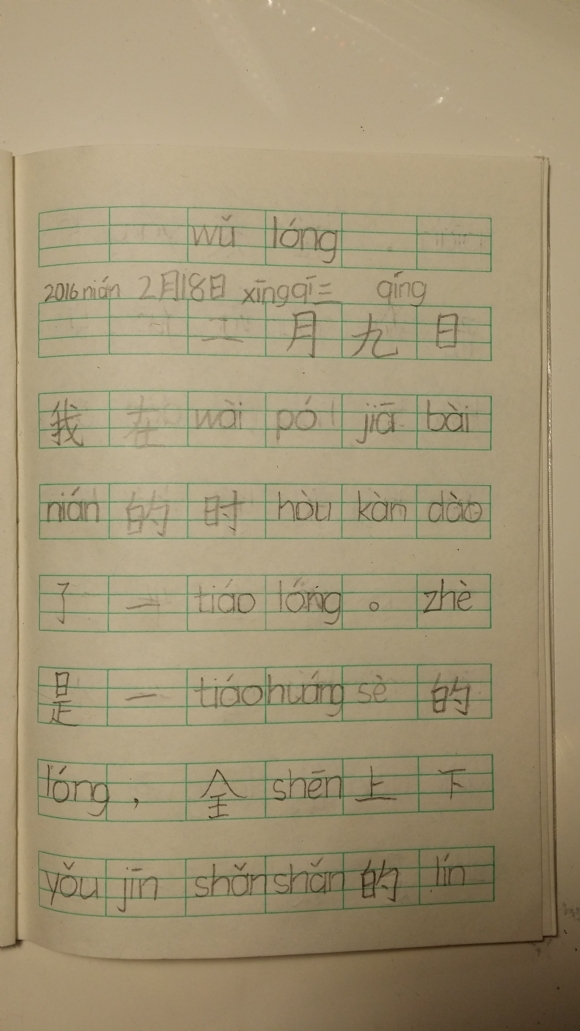 wǔ lóng
2016nián 2月18日 xīngqī三 qíng
二月九日
我在wài pó jiā bài
nián的时hòu kàn dào
了一tiáo lóng。zhè
是一tiáo huáng sè的
lóng，全shēn上下
yǒu jīn shǎn shǎn的lín